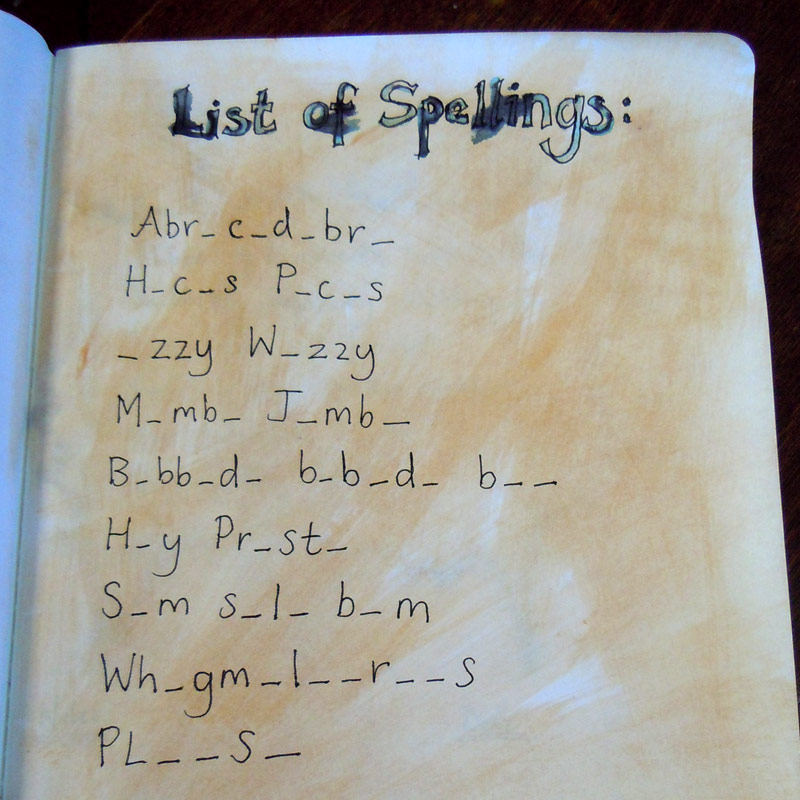 List of Spellings:
Abr_ c_d_br_
H_c_s P_c_s
_zzy W_zzy
M_mb_ J_mb_
B_bb_d_ b_b_d_ b_ _
H_y Pr_st_
S_m s_l_ b_m
Wh_gm_l_ _r_ _s
PL_ _S_